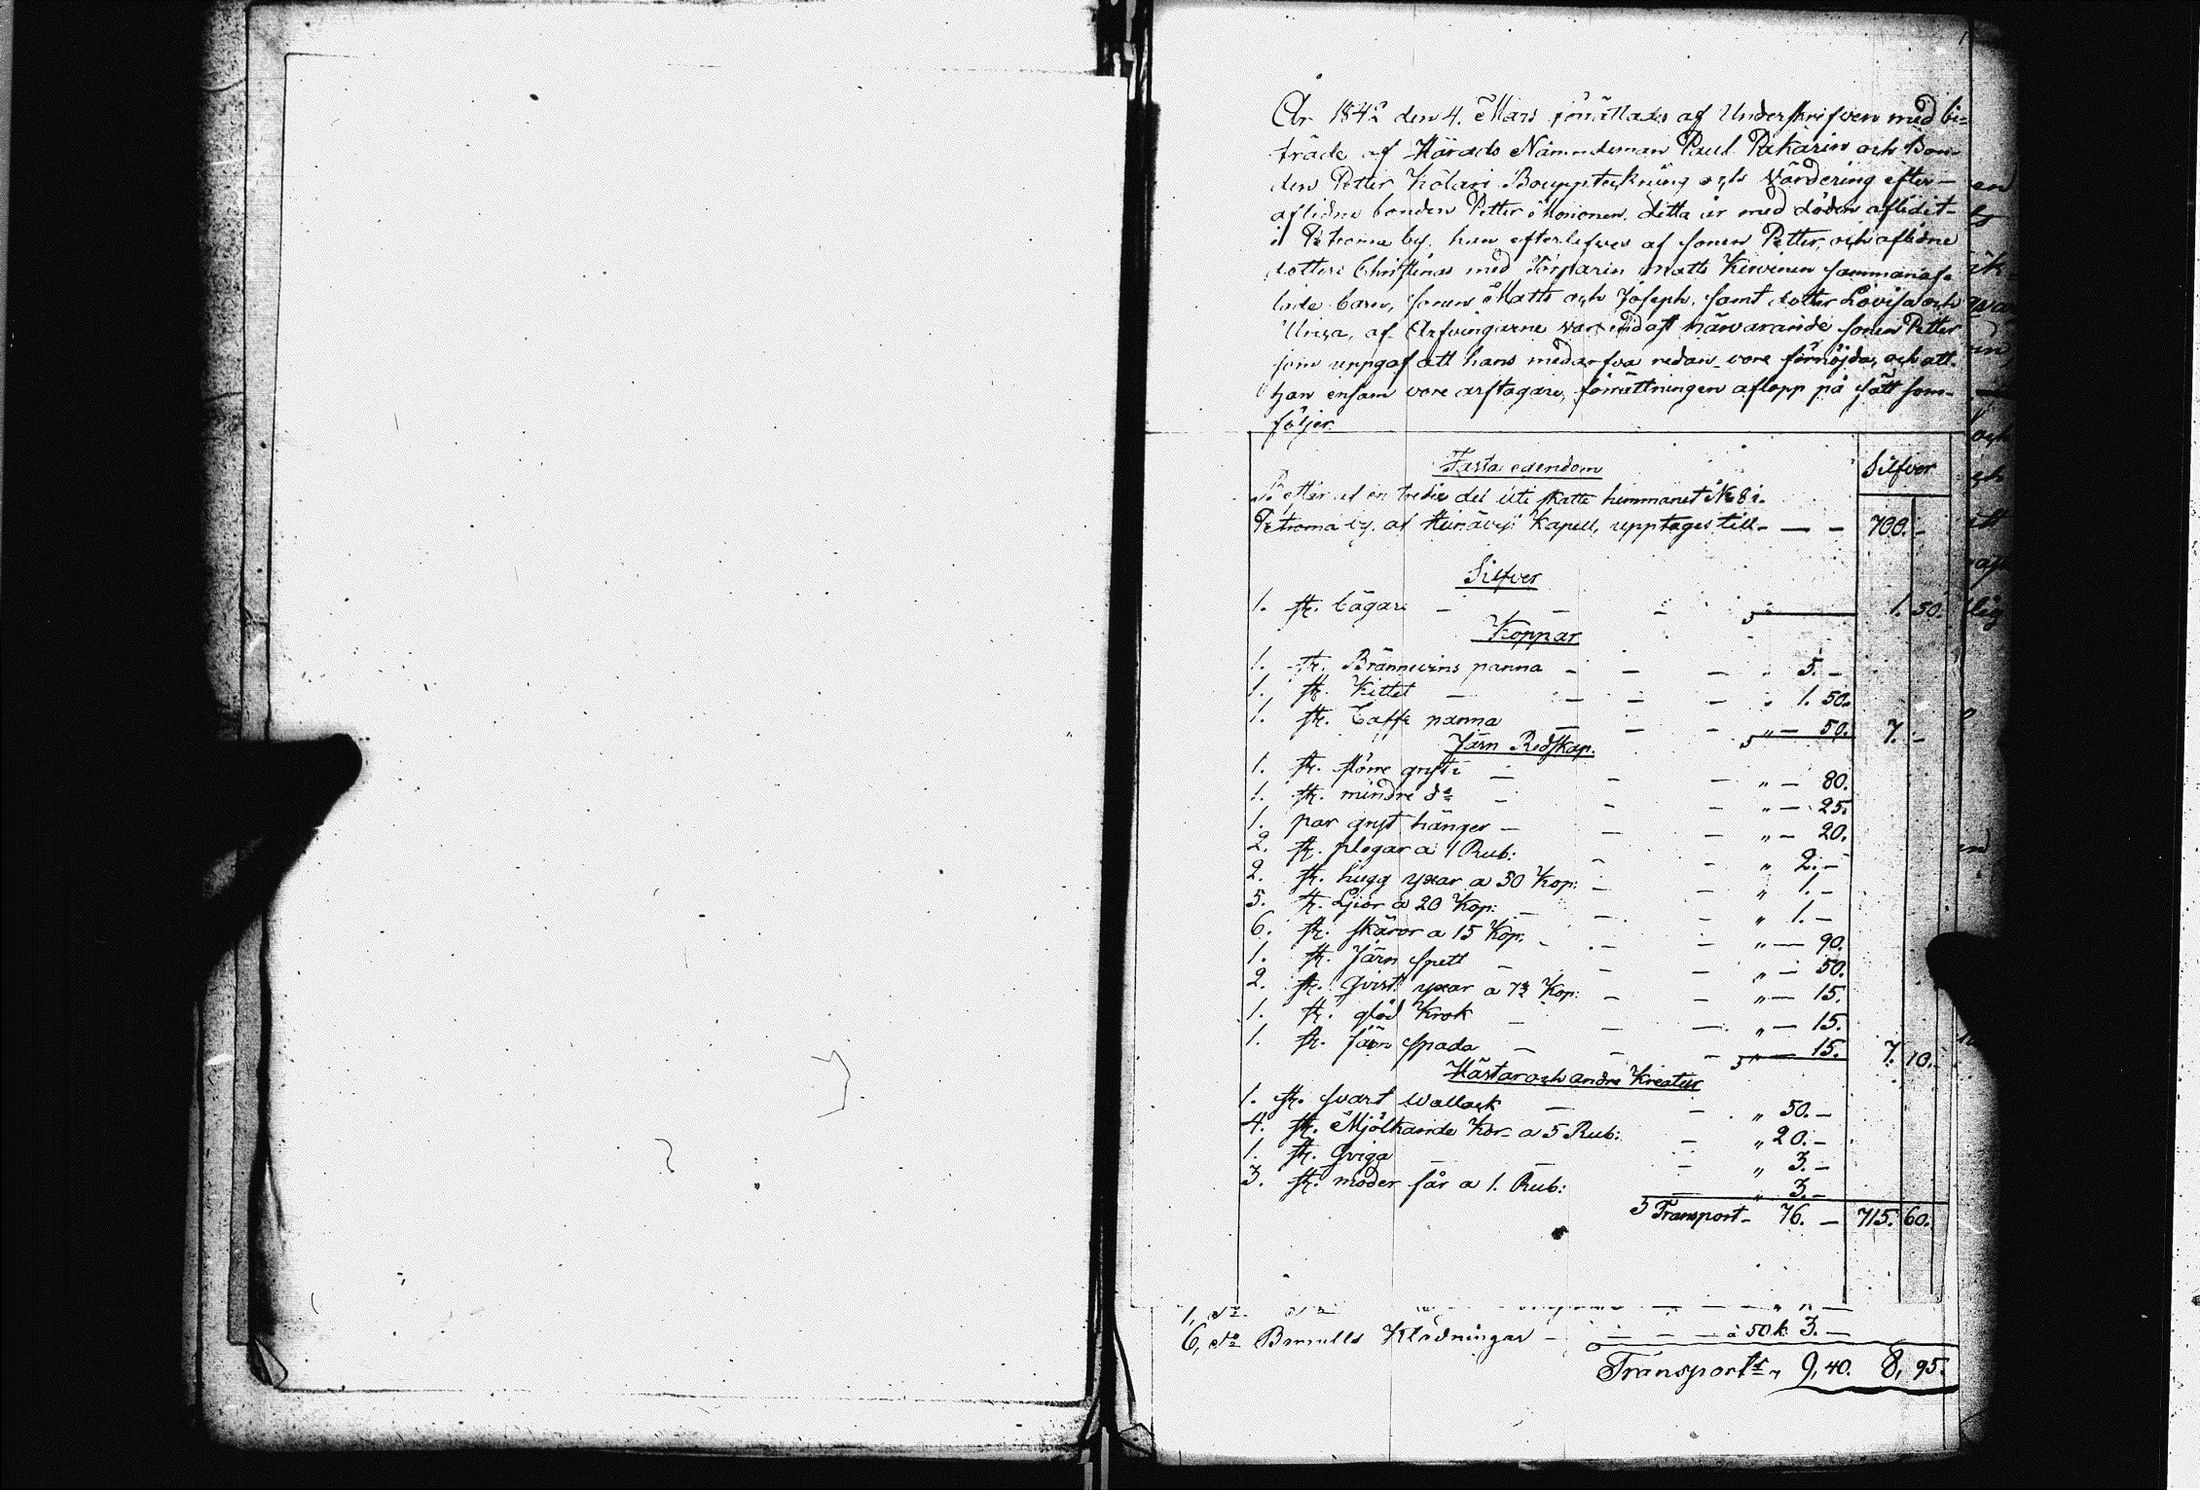 År 1842 den 4. Mars förrättades af Underskrifven med bi-
träde af Härads Nämndeman Paul Pakarin och Bon-
den Petter Kolari Bouppteckning och Värdering efter
aflidne bonden Petter Mononen, detta år med döden aflidit
i Petroma by, han efterlefves af sonen Petter, och aflidne
dotters Christinas med Torparin Matts Kervinen sammanaf-
lade barn, sonen Matts och Joseph, samt dotter Lovisa och
af Arfvingarne var endast närvarande sonen Petter
som uppgaf att hans medarfva redan vore förnöjda, och att
han ensam vore arftagare, förrättningen aflopp på sätt som
följer.
Fasta egendom
Silfver
en tredie del uti skatte hemmanet № 8 i
Petroma by, af Kapell, upptages till — — 700. -
Silfver
1. st. bägare — — — 1. 50.
Koppar
1. st. Brännvins panna — — — 5. —
1. st. Kittel — — — 1. 50.
1. st. Caffe panna — — — „ — 50. 7. -
Järn Redskap.
1. st. större gryta — — — „ — 80.
1. st. mindre do — — — „ — 25.
1. par gryt hänger — — — „ — 20.
2. st. plogar a 1 Rub: — — „ 2. —
2. st. hugg yxar a 50 Kop: — — „ 1. —
5. st. Ljior a 20 Kop: — — — „ 1. —
6. st. skäror a 15 Kop. — — — „ — 90.
1. st. Järn spett — — — „ — 50.
2. st. qvist yxar a 7½ Kop: — — „ — 15.
1. st. glöd Krok — — — „ — 15.
1. st. Järn spada — — — „ — 15. 7. 10.
Hästar och andre Kreatur
1. st. svart Wallack — — „ 50. —
4. st. Mjölkande Kor a 5 Rub: — „ 20. —
1. st. Qviga — „ 3. —
3. st. moder får a 1. Rub: — „ 3. —
Transport — 76. — 715. 60.
6, do Bomulls Klädningar — — — — à 50 k. 3. —
Transport 9, 40. 8, 95.